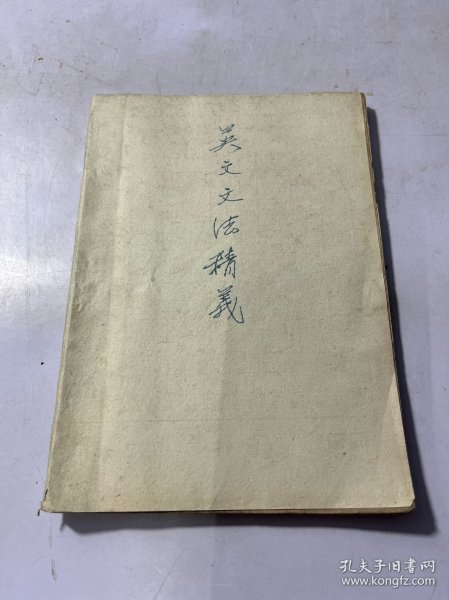 英文文法精義
孔夫子旧书网
www.kongfz.com